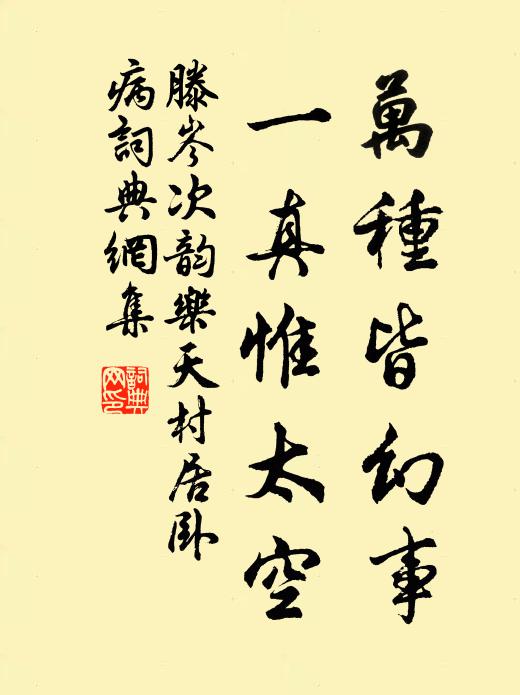 萬種皆幻事
一真惟太空
滕岑次韵樂天村居卧
病詞典網集
詞典
网印